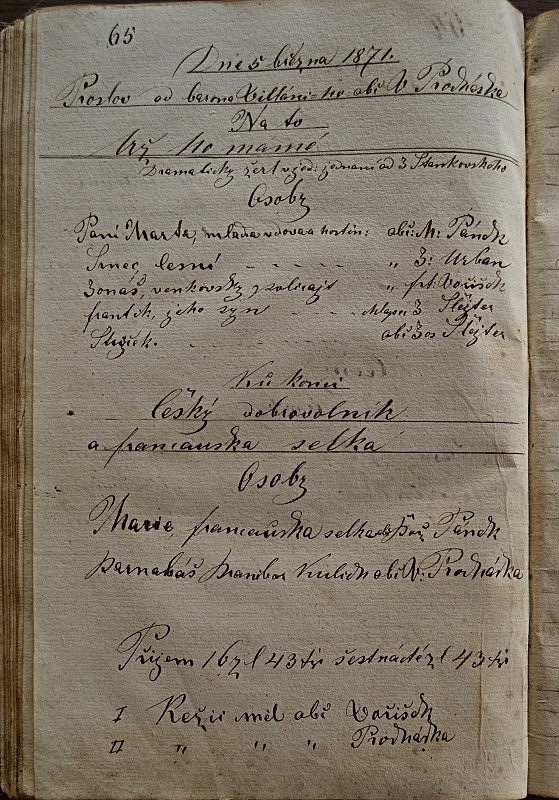 65
Dne 5 března 1871.
Proslov od barona Villáni-ho obč V Procháska
Na to
Již ho mámé
Dramatický žert v jed: jednaní od J Stankovskeho
Osoby
Paní Marta, mlada vdova a hostin: obč: M: Pánek
Srnec, lesní - - - - - „ J: Urban
Jonáš, venkovský policajt „ frt: Voříšek
frantík, jeho syn - - - chlapec J Šlejter
Strýček. obč Jos Šlejter
Ku konci
český dobrovolník
a francauska selka
Osoby
Marie, francauska selka obč Pánek
Barnabáš Kulich obč V: Procháska
Příjem 16 zl 43 kr šestnáct zl 43 kr
I Režii měl obč Voříšek
II „ „ „ Procháska